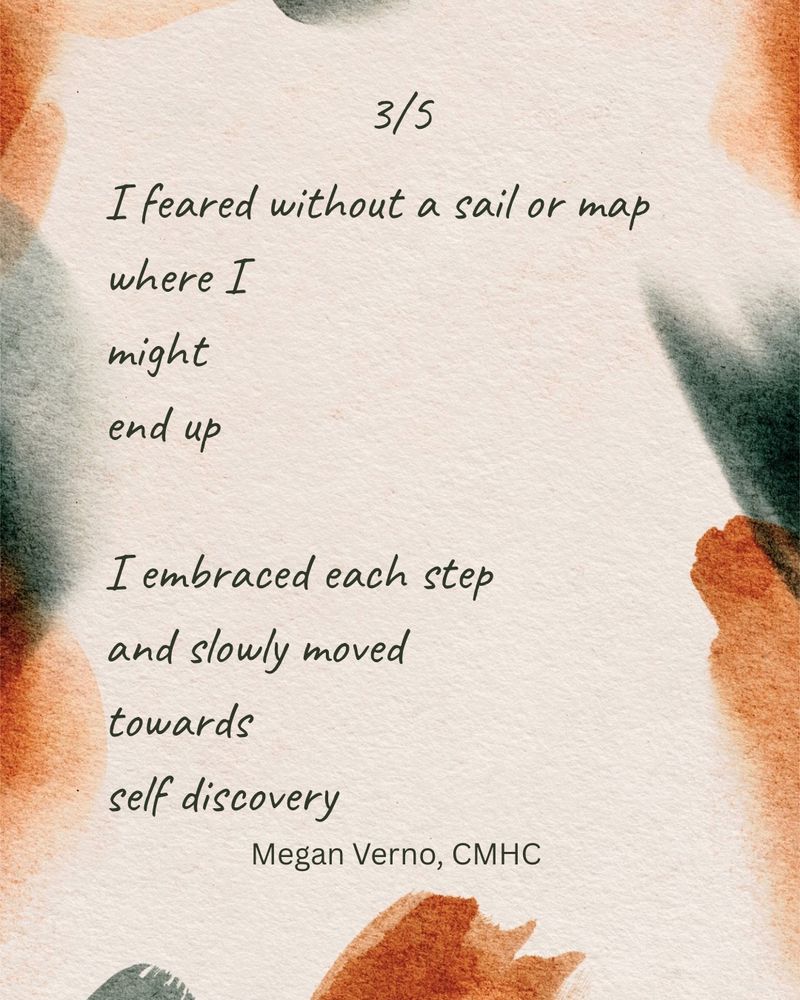 3/5
I feared without a sail or map
where I
might
end up
I embraced each step
and slowly moved
towards
self discovery
Megan Verno, CMHC